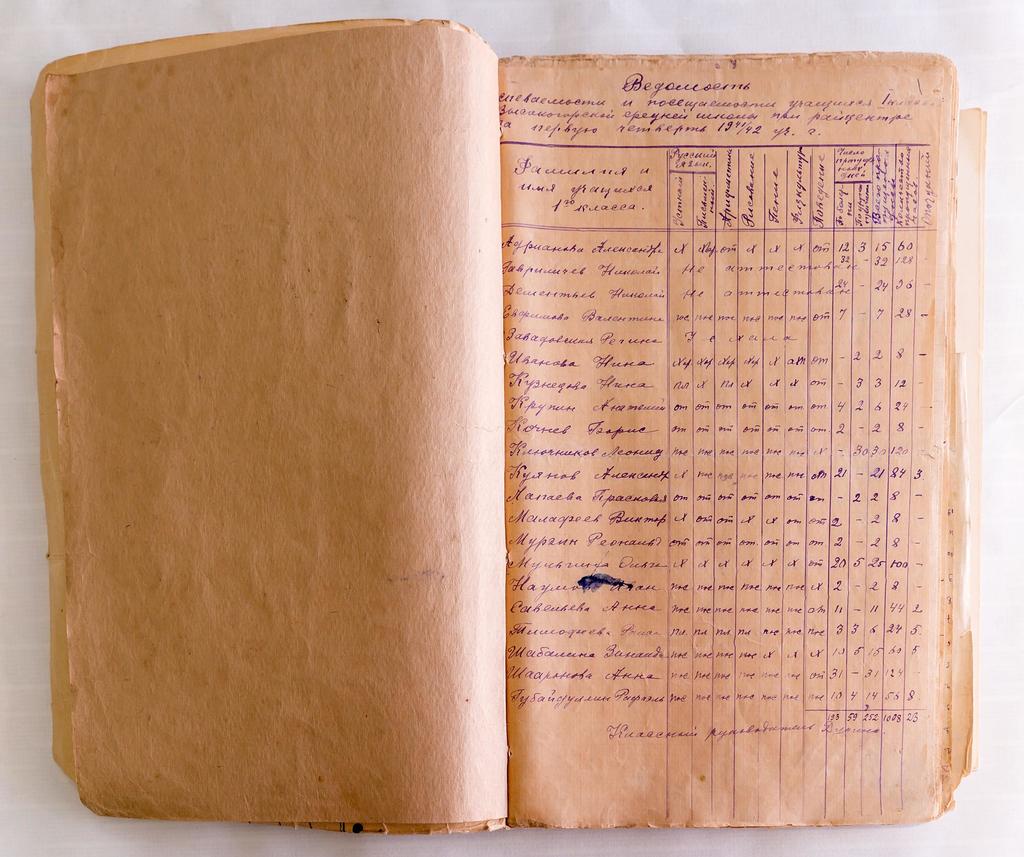 Ведомость
успеваемости и посещаемости учащихся I класса
Высокогорской средней школы при райцентре
за первую четверть 1941/42 уч. г.
Фамилия и имя учащихся 1го класса. Русский язык. Устный Письменный Арифметика Рисование Пение Физкультура Поведение Число пропущенных дней По болезни Всего пропущено Количество пропущенных часов Опозданий
Адрианова Александра х хор от х х х от 12 3 15 60
Гаврилычев Николай Не аттестован 32 - 32 128
Дементьев Николай Не аттестован 24 - 24 96
Евдокимова Валентина пос пос пос пос пос пос от 7 - 7 28 -
Завадовская Регина Уехала
Иванова Нина хор хор хор хор х от от - 2 2 8 -
Кузнецова Нина пл х пл х х х от - 3 3 12 -
Крупин Анатолий от от от от от от от 4 2 6 24 -
Кочнев Борис от от от от от от от. 2 - 2 8 -
Ключников Леонид пос пос пос пос пос пос х - 30 30 120 -
Куянов Александр х пос пос пос пос пос от 21 - 21 84 3
Лапаева Прасковья от от от от от от от - 2 2 8 -
Малафеев Виктор х от от х х от от 2 - 2 8 -
Мурзин Леонид от от от от от от от 2 - 2 8 -
Ольга х х х х х х от 20 5 25 100 -
Наумов Иван пос пос пос пос пос пос х 2 - 2 8 -
Савельева Анна пос пос пос пос пос пос от 11 - 11 44 2
Тимофеева пл пл пл пл пос пос пос 3 3 6 24 5
Шабалина Зинаида пос пос пос пос х х х 10 5 15 60 5
Шадронова Анна пос пос пос пос пос пос от 31 - 31 124 -
Губайдуллин Рафаэль пос пос пос пос пос пос пос 10 4 14 56 8
193 59 252 1008 23
Классный руководитель